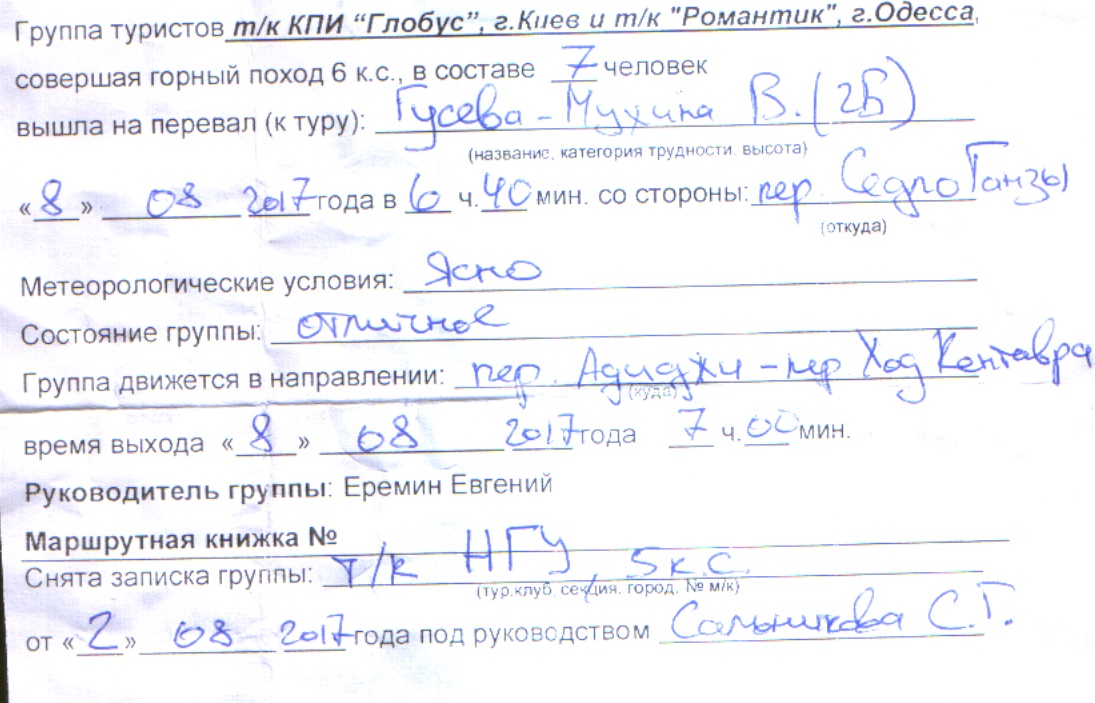 Группа туристов т/к КПИ “Глобус”, г.Киев и т/к "Романтик", г.Одесса,
совершая горный поход 6 к.с., в составе 7 человек
вышла на перевал (к туру): Гусева - Мухина В. (2Б)
(название, категория трудности, высота)
«8» 08 2017 года в 6 ч. 40 мин. со стороны: пер. Седло Ганзы
(откуда)
Метеорологические условия: Ясно
Состояние группы: отличное
Группа движется в направлении: пер. Адиджи - пер Ход Кентавра
(куда)
время выхода «8» 08 2017 года 7 ч. 00 мин.
Руководитель группы: Еремин Евгений
Маршрутная книжка №
Снята записка группы: Т/к НГУ, 5 к.с.
(тур.клуб, секция, город, № м/к)
от «2» 08 2017 года под руководством Сальникова С.Г.